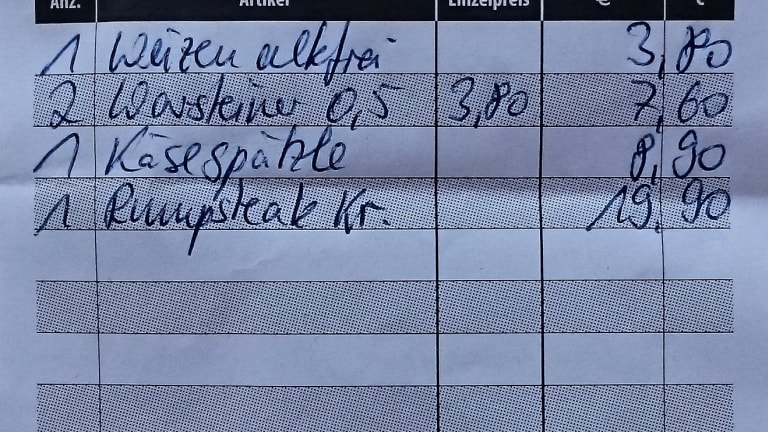 Anz. Artikel Einzelpreis € c
1 Weizen alkfrei 3,80
2 Warsteiner 0,5 3,80 7,60
1 Käsespätzle 8,90
1 Rumpsteak Kr. 19,90